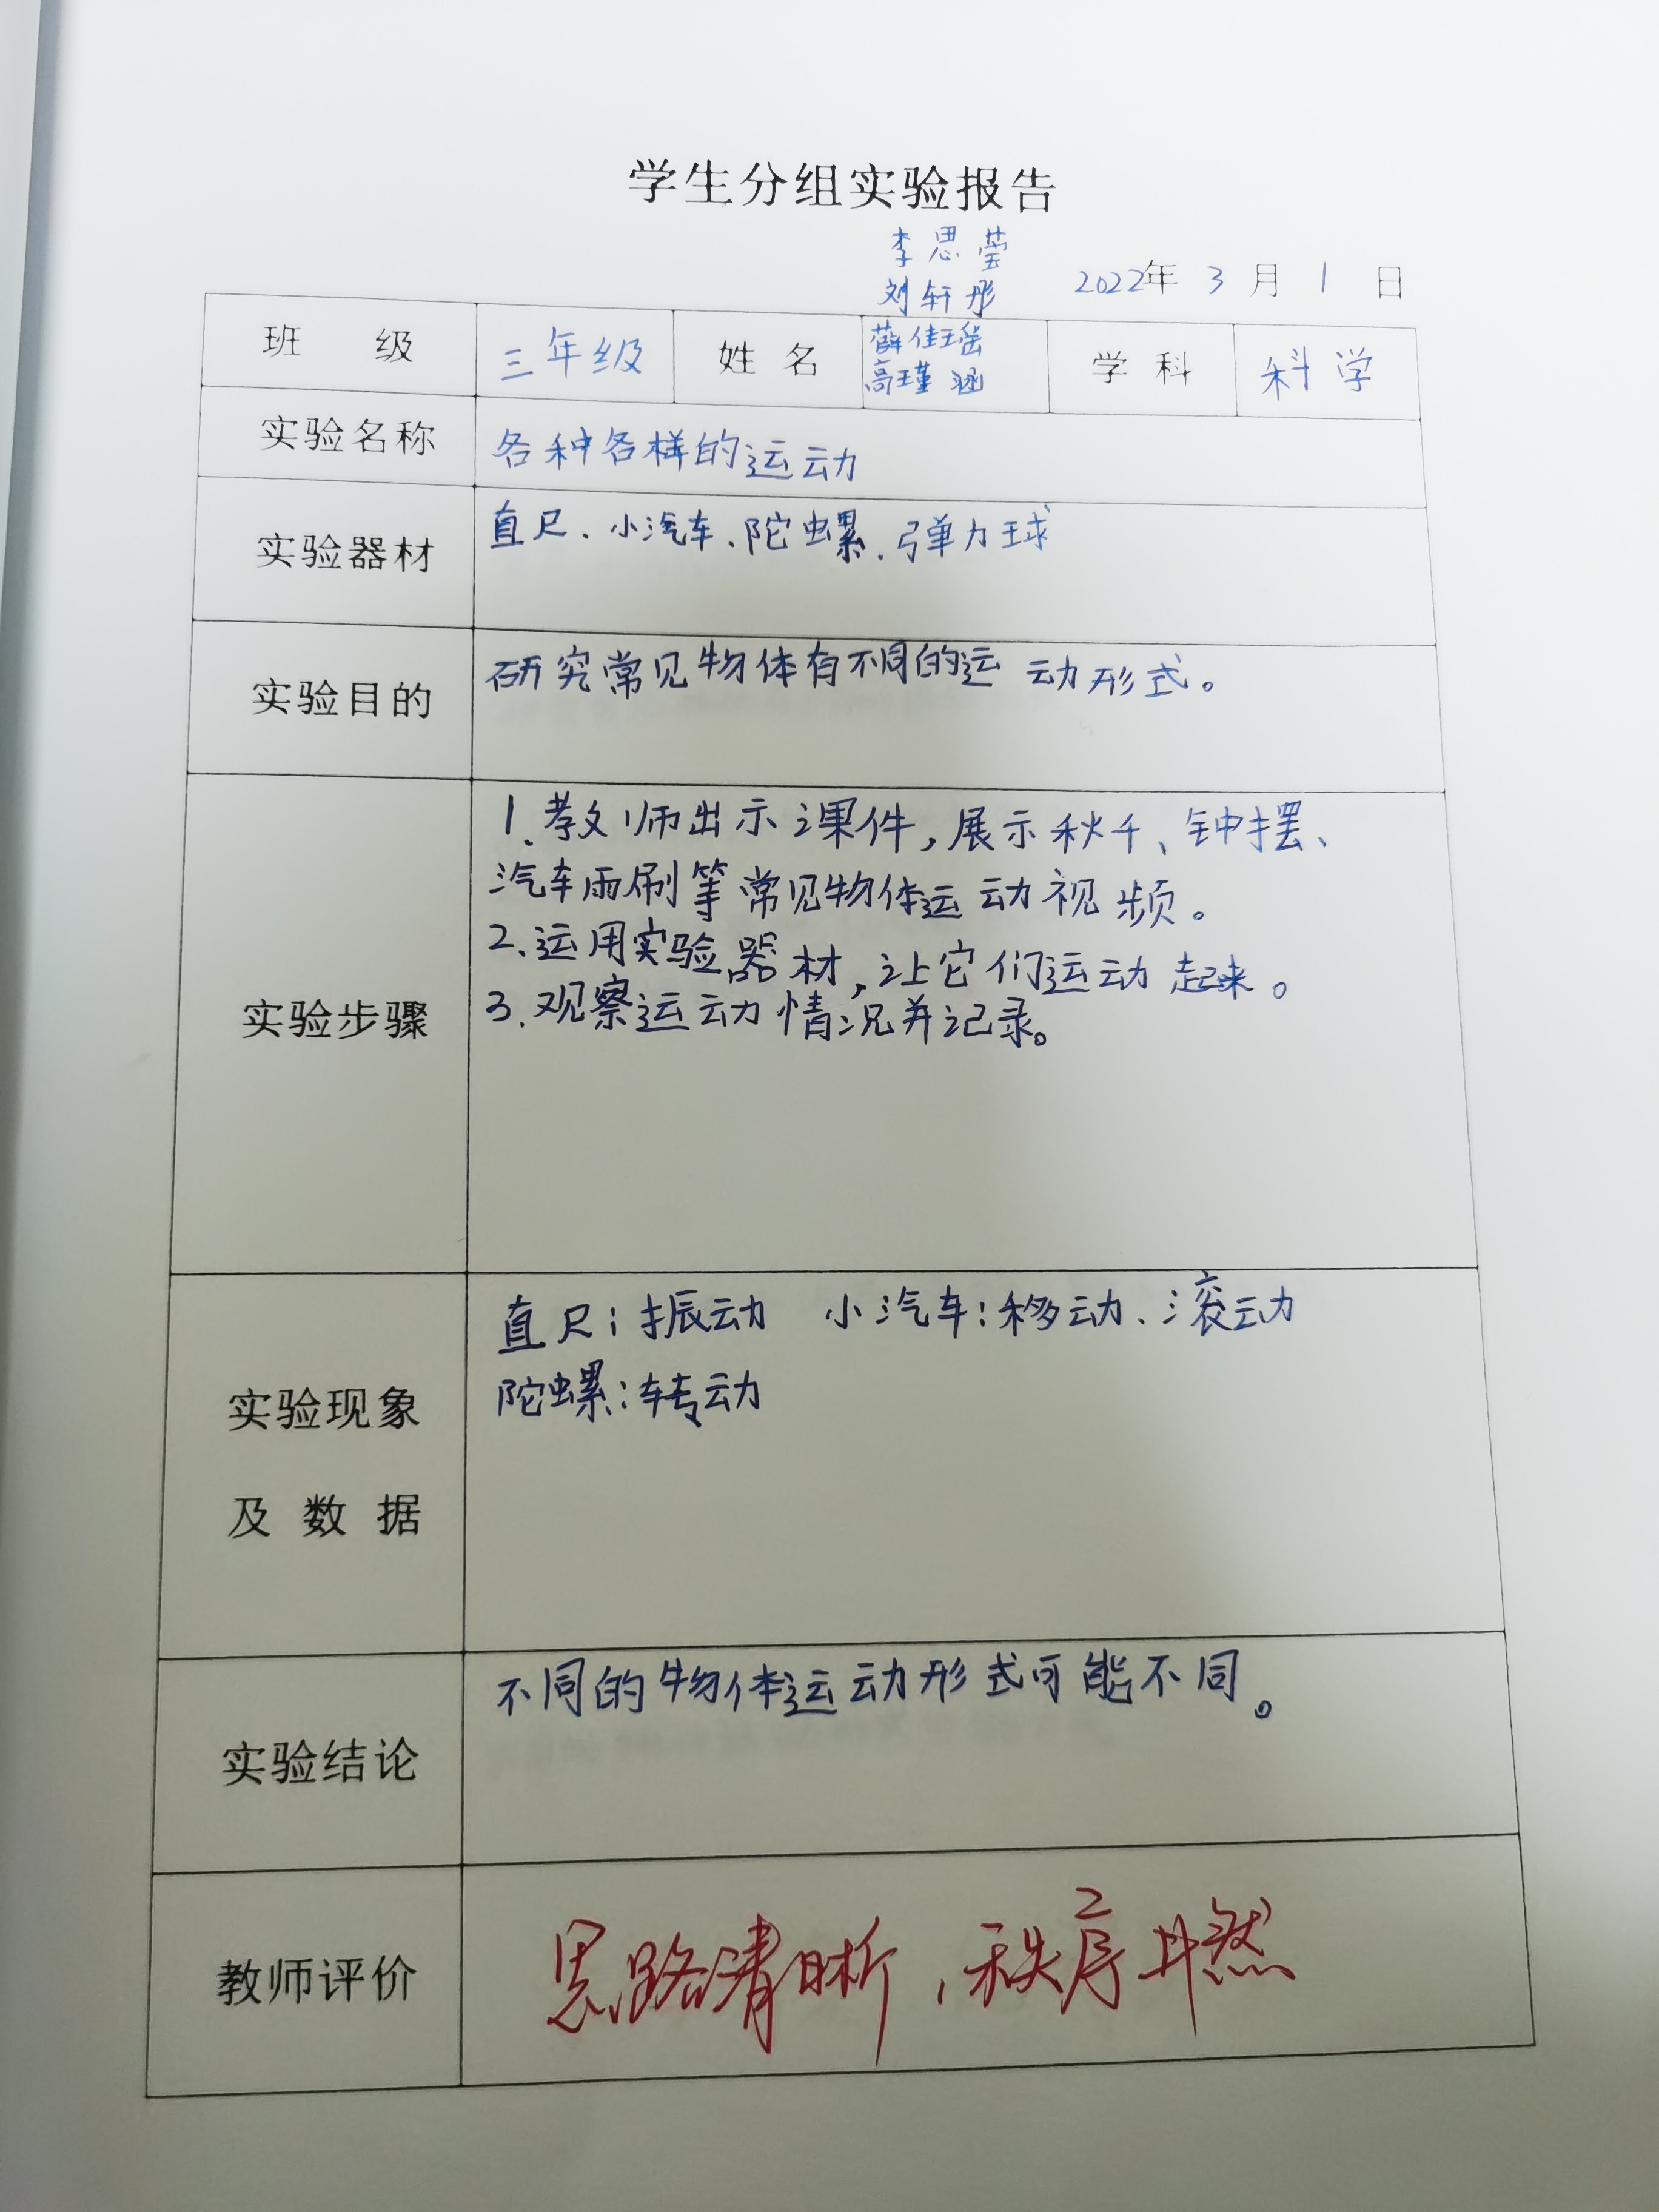 学生分组实验报告
李思莹
刘轩彤
2022年 3 月 1 日
班 级 三年级 姓 名 薛佳瑶 高瑾涵 学 科 科学
实验名称 各种各样的运动
实验器材 直尺、小汽车、陀螺、弹力球
实验目的 研究常见物体有不同的运动形式。
实验步骤
1.教师出示课件,展示秋千、钟摆、
汽车雨刷等常见物体运动视频。
2.运用实验器材,让它们运动起来。
3.观察运动情况并记录。
实验现象
及 数 据
直尺:振动 小汽车:移动、滚动
陀螺:转动
实验结论 不同的物体运动形式可能不同。
教师评价 思路清晰,秩序井然